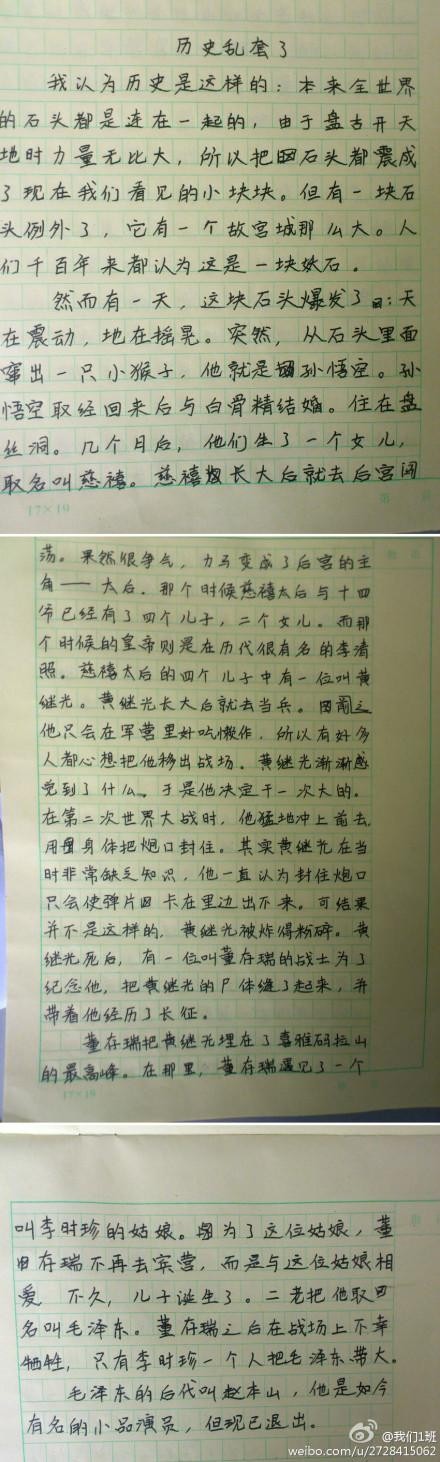 历史乱套了
我认为历史是这样的：本来全世界
的石头都是连在一起的，由于盘古开天
地时力量无比大，所以把石头都震成
了现在我们看见的小块块。但有一块石
头例外了，它有一个故宫城那么大。人
们千百年来都认为这是一块妖石。
然而有一天，这块石头爆发了：天
在震动，地在摇晃。突然，从石头里面
窜出一只小猴子，他就是孙悟空。孙
悟空取经回来后与白骨精结婚。住在盘
丝洞。几个月后，他们生了一个女儿，
取名叫慈禧。慈禧长大后就去后宫闯
17×19
荡。果然很争气，力马变成了后宫的主
角——太后。那个时候慈禧太后与十四
爷已经有了四个儿子，二个女儿。而那
个时候的皇帝则是在历代很有名的李清
照。慈禧太后的四个儿子中有一位叫黄
继光。黄继光长大后就去当兵。
他只会在军营里好吃懒作，所以有好多
人都心想把他移出战场。黄继光渐渐感
觉到了什么。于是他决定干一次大的。
在第二次世界大战时，他猛地冲上前去，
用身体把炮口封住。其实黄继光在当
时非常缺乏知识，他一直认为封住炮口
只会使弹片卡在里边出不来。可结果
并不是这样的，黄继光被炸得粉碎。黄
继光死后，有一位叫董存瑞的战士为了
纪念他，把黄继光的尸体缝了起来，并
带着他经历了长征。
董存瑞把黄继光埋在了喜雅码拉山
的最高峰。在那里，董存瑞遇见了一个
17×19
叫李时珍的姑娘。因为了这位姑娘，董
存瑞不再去宾营，而是与这位姑娘相
爱，不久，儿子诞生了。二老把他取
名叫毛泽东。董存瑞之后在战场上不幸
牺牲，只有李时珍一个人把毛泽东带大。
毛泽东的后代叫赵本山，他是如今
有名的小品演员，但现已退出。
@我们1班
weibo.com/u/2728415062